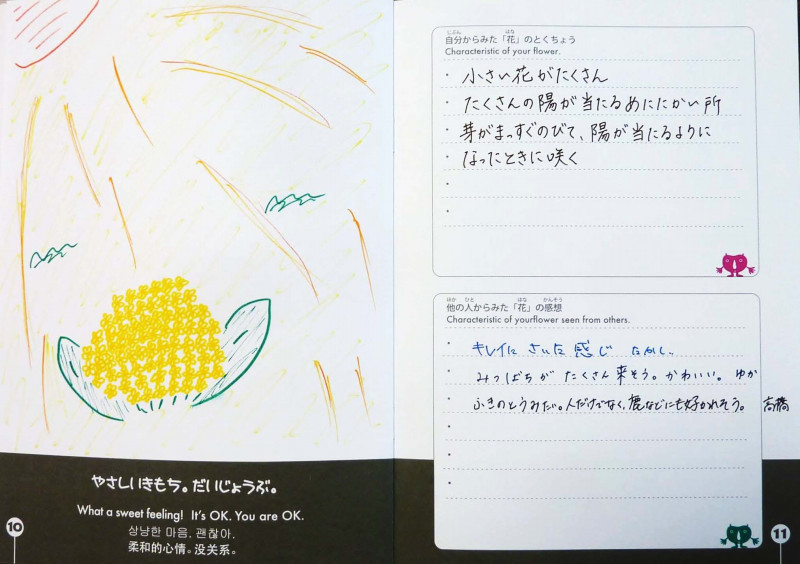 やさしいきもち。だいじょうぶ。
What a sweet feeling! It's OK. You are OK.
상냥한 마음. 괜찮아.
柔和的心情。没关系。
10
じぶん はな
自分からみた「花」のとくちょう
Characteristic of your flower.
・小さい花がたくさん
・たくさんの陽が当たるあににかい所
・芽がまっすぐのびて、陽が当たるように
・なったときに咲く
・
・
ほか ひと はな かんそう
他の人からみた「花」の感想
Characteristic of yourflower seen from others.
・キレイに さいた 感じ たかし.
・みつばちが たくさん来そう。かわいい。 ゆか
・ふきのとうみたい。人だけでなく、鹿などにも好かれそう。 高橋
・
・
・
11